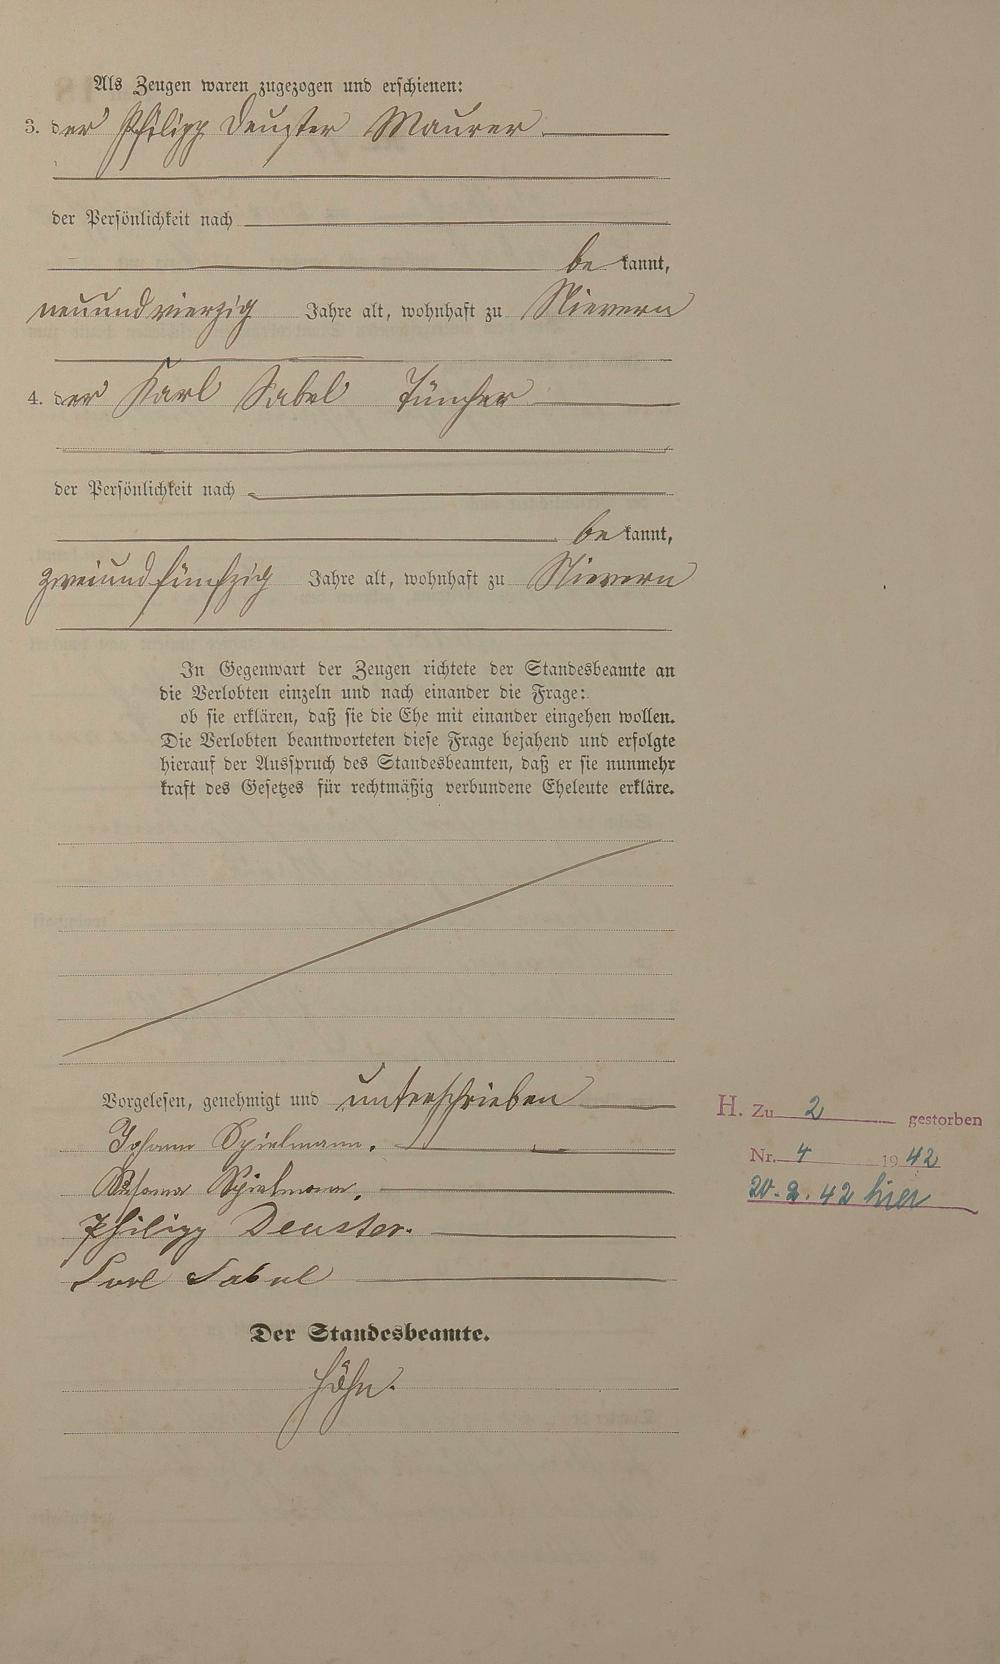 Als Zeugen waren zugezogen und erschienen:
3. der Philipp Deuster Maurer
der Persönlichkeit nach
be kannt,
neunundvierzig Jahre alt, wohnhaft zu Nievern
4. der Karl Sabel Tüncher
der Persönlichkeit nach
be kannt,
zweiundfünfzig Jahre alt, wohnhaft zu Nievern
In Gegenwart der Zeugen richtete der Standesbeamte an
die Verlobten einzeln und nach einander die Frage:
ob sie erklären, daß sie die Ehe mit einander eingehen wollen.
Die Verlobten beantworteten diese Frage bejahend und erfolgte
hierauf der Ausspruch des Standesbeamten, daß er sie nunmehr
kraft des Gesetzes für rechtmäßig verbundene Eheleute erkläre.
Vorgelesen, genehmigt und unterschrieben
Johann Spielmann.
Susanna Spielmann.
Philipp Deuster.
Karl Sabel
Der Standesbeamte.
Höhn.
H. Zu 2 gestorben
Nr. 4 1942
20.2.42 hier